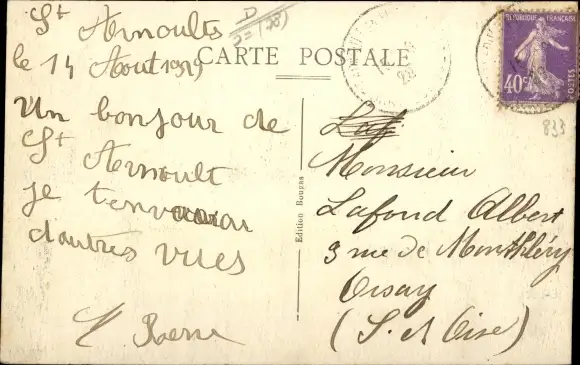 St Arnoults
le 14 Aout 1929
CARTE POSTALE
Un bonjour de
St Arnoult
je t'enverrai
d'autres vues
Edition Bougas
Monsieur
Lafond Albert
3 rue de Montlhéry
Orsay
(S. et Oise)
RÉPUBLIQUE FRANÇAISE
40c
POSTES
833